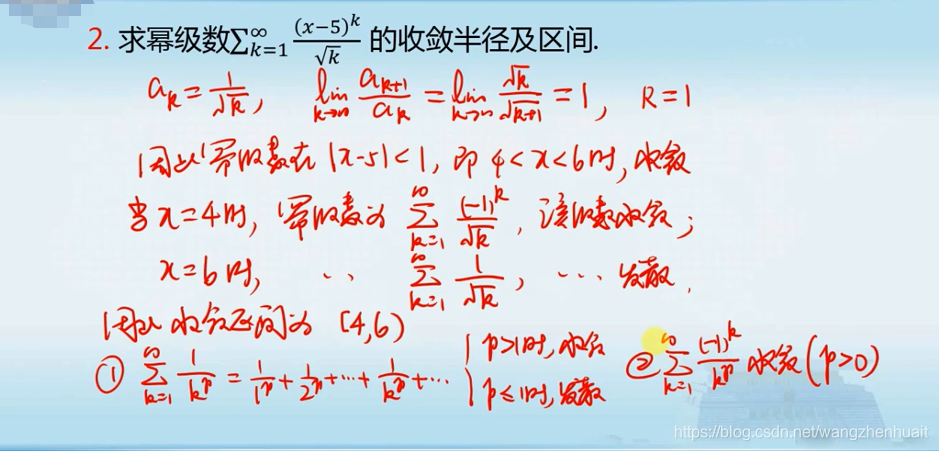 2. 求幂级数∑_{k=1}^{∞} (x−5)^k/√k 的收敛半径及区间.
a_k = 1/√k, lim_{k→∞} a_{k+1}/a_k = lim_{k→∞} √k/√(k+1) = 1, R=1
因此幂级数在 |x-5|<1, 即 4<x<6时, 收敛
当x=4时, 幂级数为 ∑_{k=1}^{∞} (-1)^k/√k, 该级数收敛;
x=6时, ‥ ∑_{k=1}^{∞} 1/√k, … 发散.
因此 收敛区间为 [4,6)
① ∑_{k=1}^{∞} 1/k^p = 1/1^p + 1/2^p + ⋯ + 1/k^p + ⋯ { p>1时, 收敛 p≤1时, 发散 ② ∑_{k=1}^{∞} (-1)^k/k^p 收敛 (p>0)
https://blog.csdn.net/wangzhenhuait